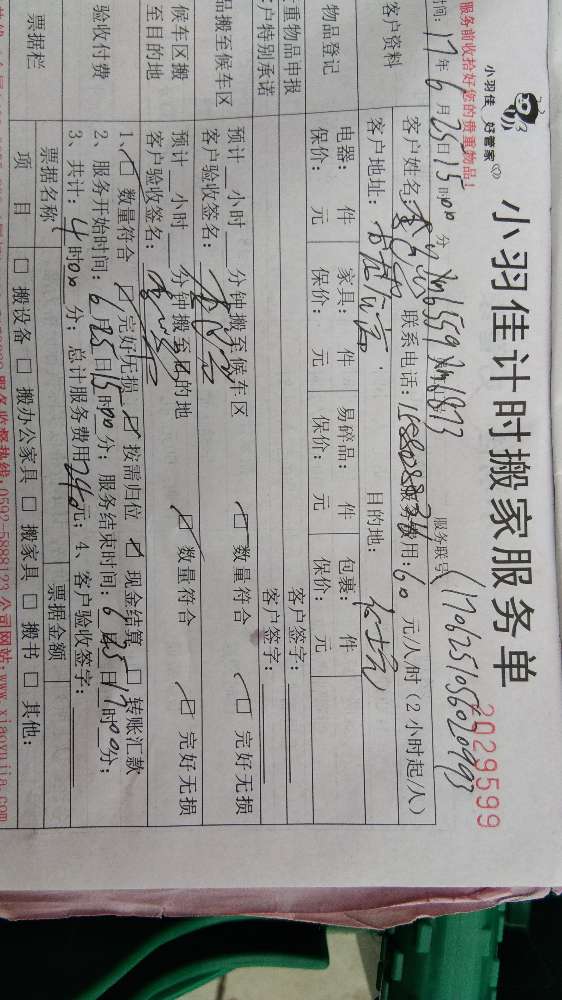 小羽佳 好管家
小羽佳计时搬家服务单
2029599
服务前收拾好您的贵重物品!
时间: 17年6月25日15时00分 服务联号
客户资料
客户姓名 联系电话: 服务费用: 60 元/人/时 (2小时起/人)
客户地址: 目的地:
物品登记
电器: 件 家具: 件 易碎品: 件 包裹: 件
保价: 元 保价: 元 保价: 元 保价: 元
重物品申报 客户签字:
客户特别承诺 客户签字:
品搬至候车区
预计 小时 分钟搬至候车区 数量符合 完好无损
客户验收签名:
候车区搬至目的地
预计 小时 分钟搬至目的地 数量符合 完好无损
客户验收签名:
验收付费
1、 数量符合 完好无损 按需归位 现金结算 转账汇款
2、服务开始时间: 6月25日15时00分; 服务结束时间: 6月25日19时00分;
3、共计: 4时00分; 总计服务费用240元; 4、客户验收签字:
票据栏
票据名称 票据金额
项目 □ 搬设备 □ 搬办公家具 □ 搬家具 □ 搬书 □ 其他:
服务监督热线:0592-5888123 公司网站:www.xiaoyujia.com